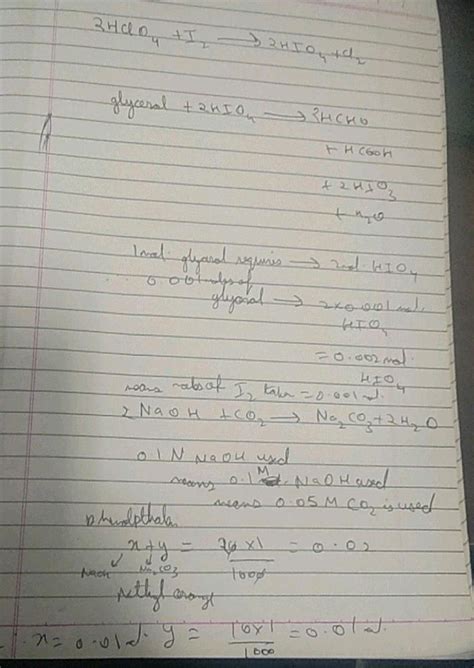 2HClO4 + I2 → 2HIO4 + Cl2
glycerol + 2HIO4 → 2HCHO
+ HCOOH
+ 2HIO3
+ H2O
1 mol. glycerol requires → 2 mol. HIO4
0.001 moles of
glycerol → 2×0.001 mol.
HIO4
= 0.002 mol.
HIO4
means moles of I2 taken = 0.001 mol.
2NaOH + CO2 → Na2CO3 + 2H2O
0.1 N NaOH used
means 0.1 M NaOH used
means 0.05 M CO2 is used
phenolpthalein
x + y = 20×1 / 1000 = 0.02
NaOH Na2CO3
Methyl orange
x = 0.01 mol. y = 10×1 / 1000 = 0.01 mol.